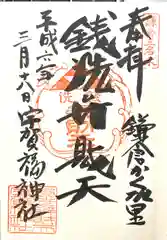 奉拝
鎌倉かくれ里
銭洗弁財天
宇賀福神社
平成二六年
三月十八日